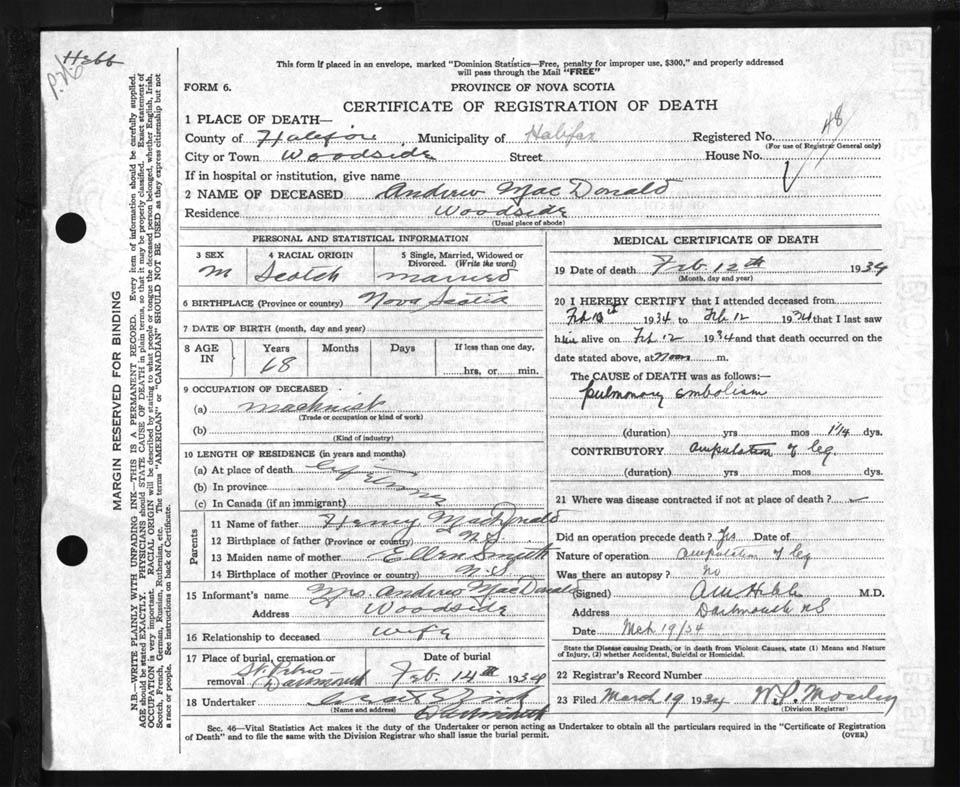 Hebb
This form if placed in an envelope, marked "Dominion Statistics—Free, penalty for improper use, $300," and properly addressed
will pass through the Mail "FREE"
FORM 6.
PROVINCE OF NOVA SCOTIA
CERTIFICATE OF REGISTRATION OF DEATH
1 PLACE OF DEATH—
County of Halifax, Municipality of Halifax Registered No. 48
(For use of Registrar General only)
City or Town Woodside Street House No.
If in hospital or institution, give name
2 NAME OF DECEASED Andrew MacDonald
Residence Woodside
(Usual place of abode)
MARGIN RESERVED FOR BINDING
N.B.—WRITE PLAINLY WITH UNFADING INK—THIS IS A PERMANENT RECORD. Every item of information should be carefully supplied.
AGE should be stated EXACTLY. PHYSICIANS should STATE CAUSE OF DEATH in plain terms, so that it may be properly classified. Exact statement of
OCCUPATION is very important. RACIAL ORIGIN will be described by stating to what people or tongue the deceased person belonged, whether English, Irish,
Scotch, French, German, Russian, Ruthenian, etc. The terms "AMERICAN" or "CANADIAN" SHOULD NOT BE USED as they express citizenship but not
a race or people. See instructions on back of Certificate.
PERSONAL AND STATISTICAL INFORMATION
3 SEX 4 RACIAL ORIGIN 5 Single, Married, Widowed or
Divorced. (Write the word)
M Scotch married
6 BIRTHPLACE (Province or country) Nova Scotia
7 DATE OF BIRTH (month, day and year)
8 AGE IN Years Months Days If less than one day,
68 hrs, or min.
9 OCCUPATION OF DECEASED
(a) machnist
(Trade or occupation or kind of work)
(b)
(Kind of industry)
10 LENGTH OF RESIDENCE (in years and months)
(a) At place of death life
(b) In province time
(c) In Canada (if an immigrant)
Parents
11 Name of father Henry MacDonald
12 Birthplace of father (Province or country) N.S.
13 Maiden name of mother Ellen Smith
14 Birthplace of mother (Province or country) N.S.
15 Informant's name Mrs. Andrew MacDonald
Address Woodside
16 Relationship to deceased wife
17 Place of burial, cremation or Date of burial
removal St. Peters Dartmouth Feb. 14th 1934
18 Undertaker
(Name and address)
Dartmouth
MEDICAL CERTIFICATE OF DEATH
19 Date of death Feb 12th 1934
(Month, day and year)
20 I HEREBY CERTIFY that I attended deceased from
Feb 1934 to Feb 12 1934 that I last saw
him alive on Feb 12 1934 and that death occurred on the
date stated above, at Noon m.
The CAUSE of DEATH was as follows:—
pulmonary embolism
(duration) yrs mos 1 1/4 dys.
CONTRIBUTORY amputation of leg
(duration) yrs mos dys.
21 Where was disease contracted if not at place of death?
Did an operation precede death? Yes Date of
Nature of operation amputation of leg
Was there an autopsy? no
(Signed) M.D.
Address Dartmouth NS
Date Mch 19/34
State the Disease causing Death, or in death from Violent Causes, state (1) Means and Nature
of Injury, (2) whether Accidental, Suicidal or Homicidal.
22 Registrar's Record Number
23 Filed March 19 1934
(Division Registrar)
Sec. 46—Vital Statistics Act makes it the duty of the Undertaker or person acting as Undertaker to obtain all the particulars required in the "Certificate of Registration
of Death" and to file the same with the Division Registrar who shall issue the burial permit. (OVER)